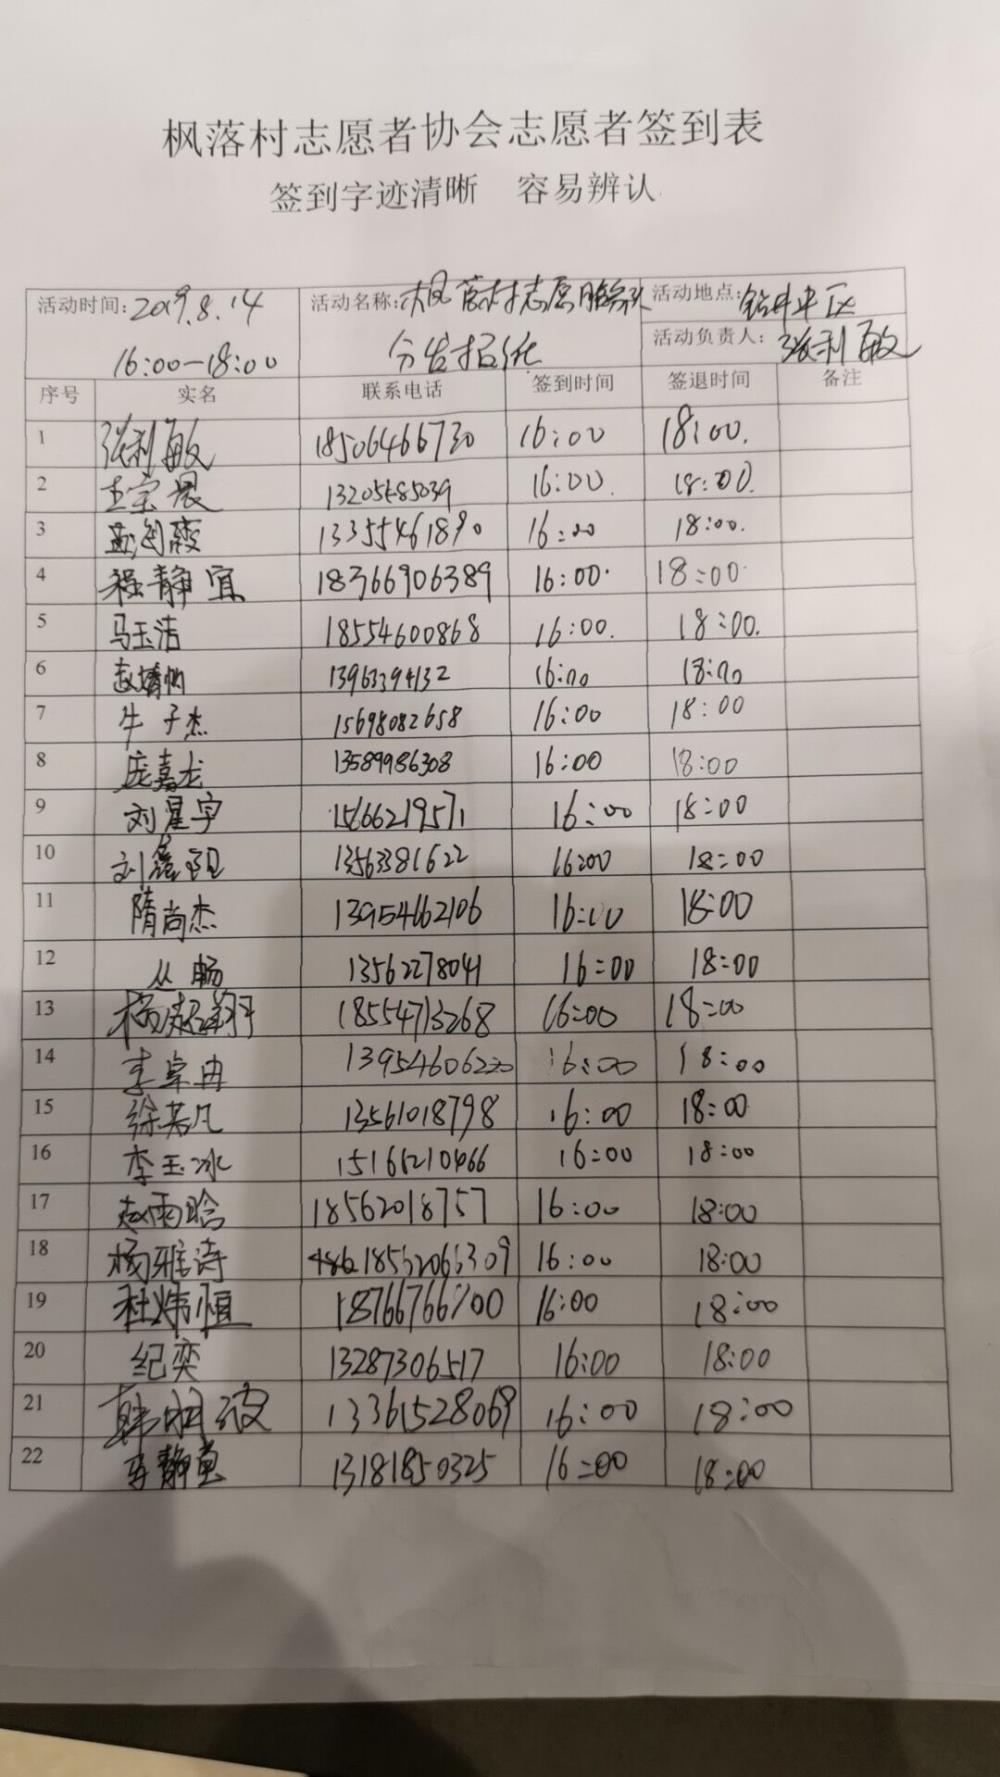 枫落村志愿者协会志愿者签到表
签到字迹清晰 容易辨认
活动时间: 2019.8.14 活动名称: 枫落村志愿服务队 活动地点:
16:00—18:00 分发报纸 活动负责人: 张利敏
序号 实名 联系电话 签到时间 签退时间 备注
1 张利敏 18506466730 16:00 18:00.
2 王宗晨 16:00. 18:00.
3 13355461890 16:00 18:00.
4 程静宜 18366906389 16:00. 18:00.
5 马玉洁 18554600868 16:00. 18:00.
6 赵靖帆 13963394132 16:00 18:00
7 牛子杰 15698082658 16:00 18:00
8 庞嘉龙 13589986308 16:00 18:00
9 刘星宇 15666219571 16:00 18:00
10 刘鑫 13563381622 16:00 18:00
11 隋尚杰 13954662106 16:00 18:00
12 从畅 13562278041 16:00 18:00
13 杨超翔 18554713268 16:00 18:00
14 李卓冉 13954606220 16:00 18:00
15 徐若凡 13561018798 16:00 18:00
16 李玉冰 15166210466 16:00 18:00
17 赵雨晗 18562018757 16:00 18:00
18 杨雅诗 16:00 18:00
19 杜炜恒 18766766700 16:00 18:00
20 纪奕 13287306517 16:00 18:00
21 韩明波 13361528069 16:00 18:00
22 13181850325 16:00 18:00